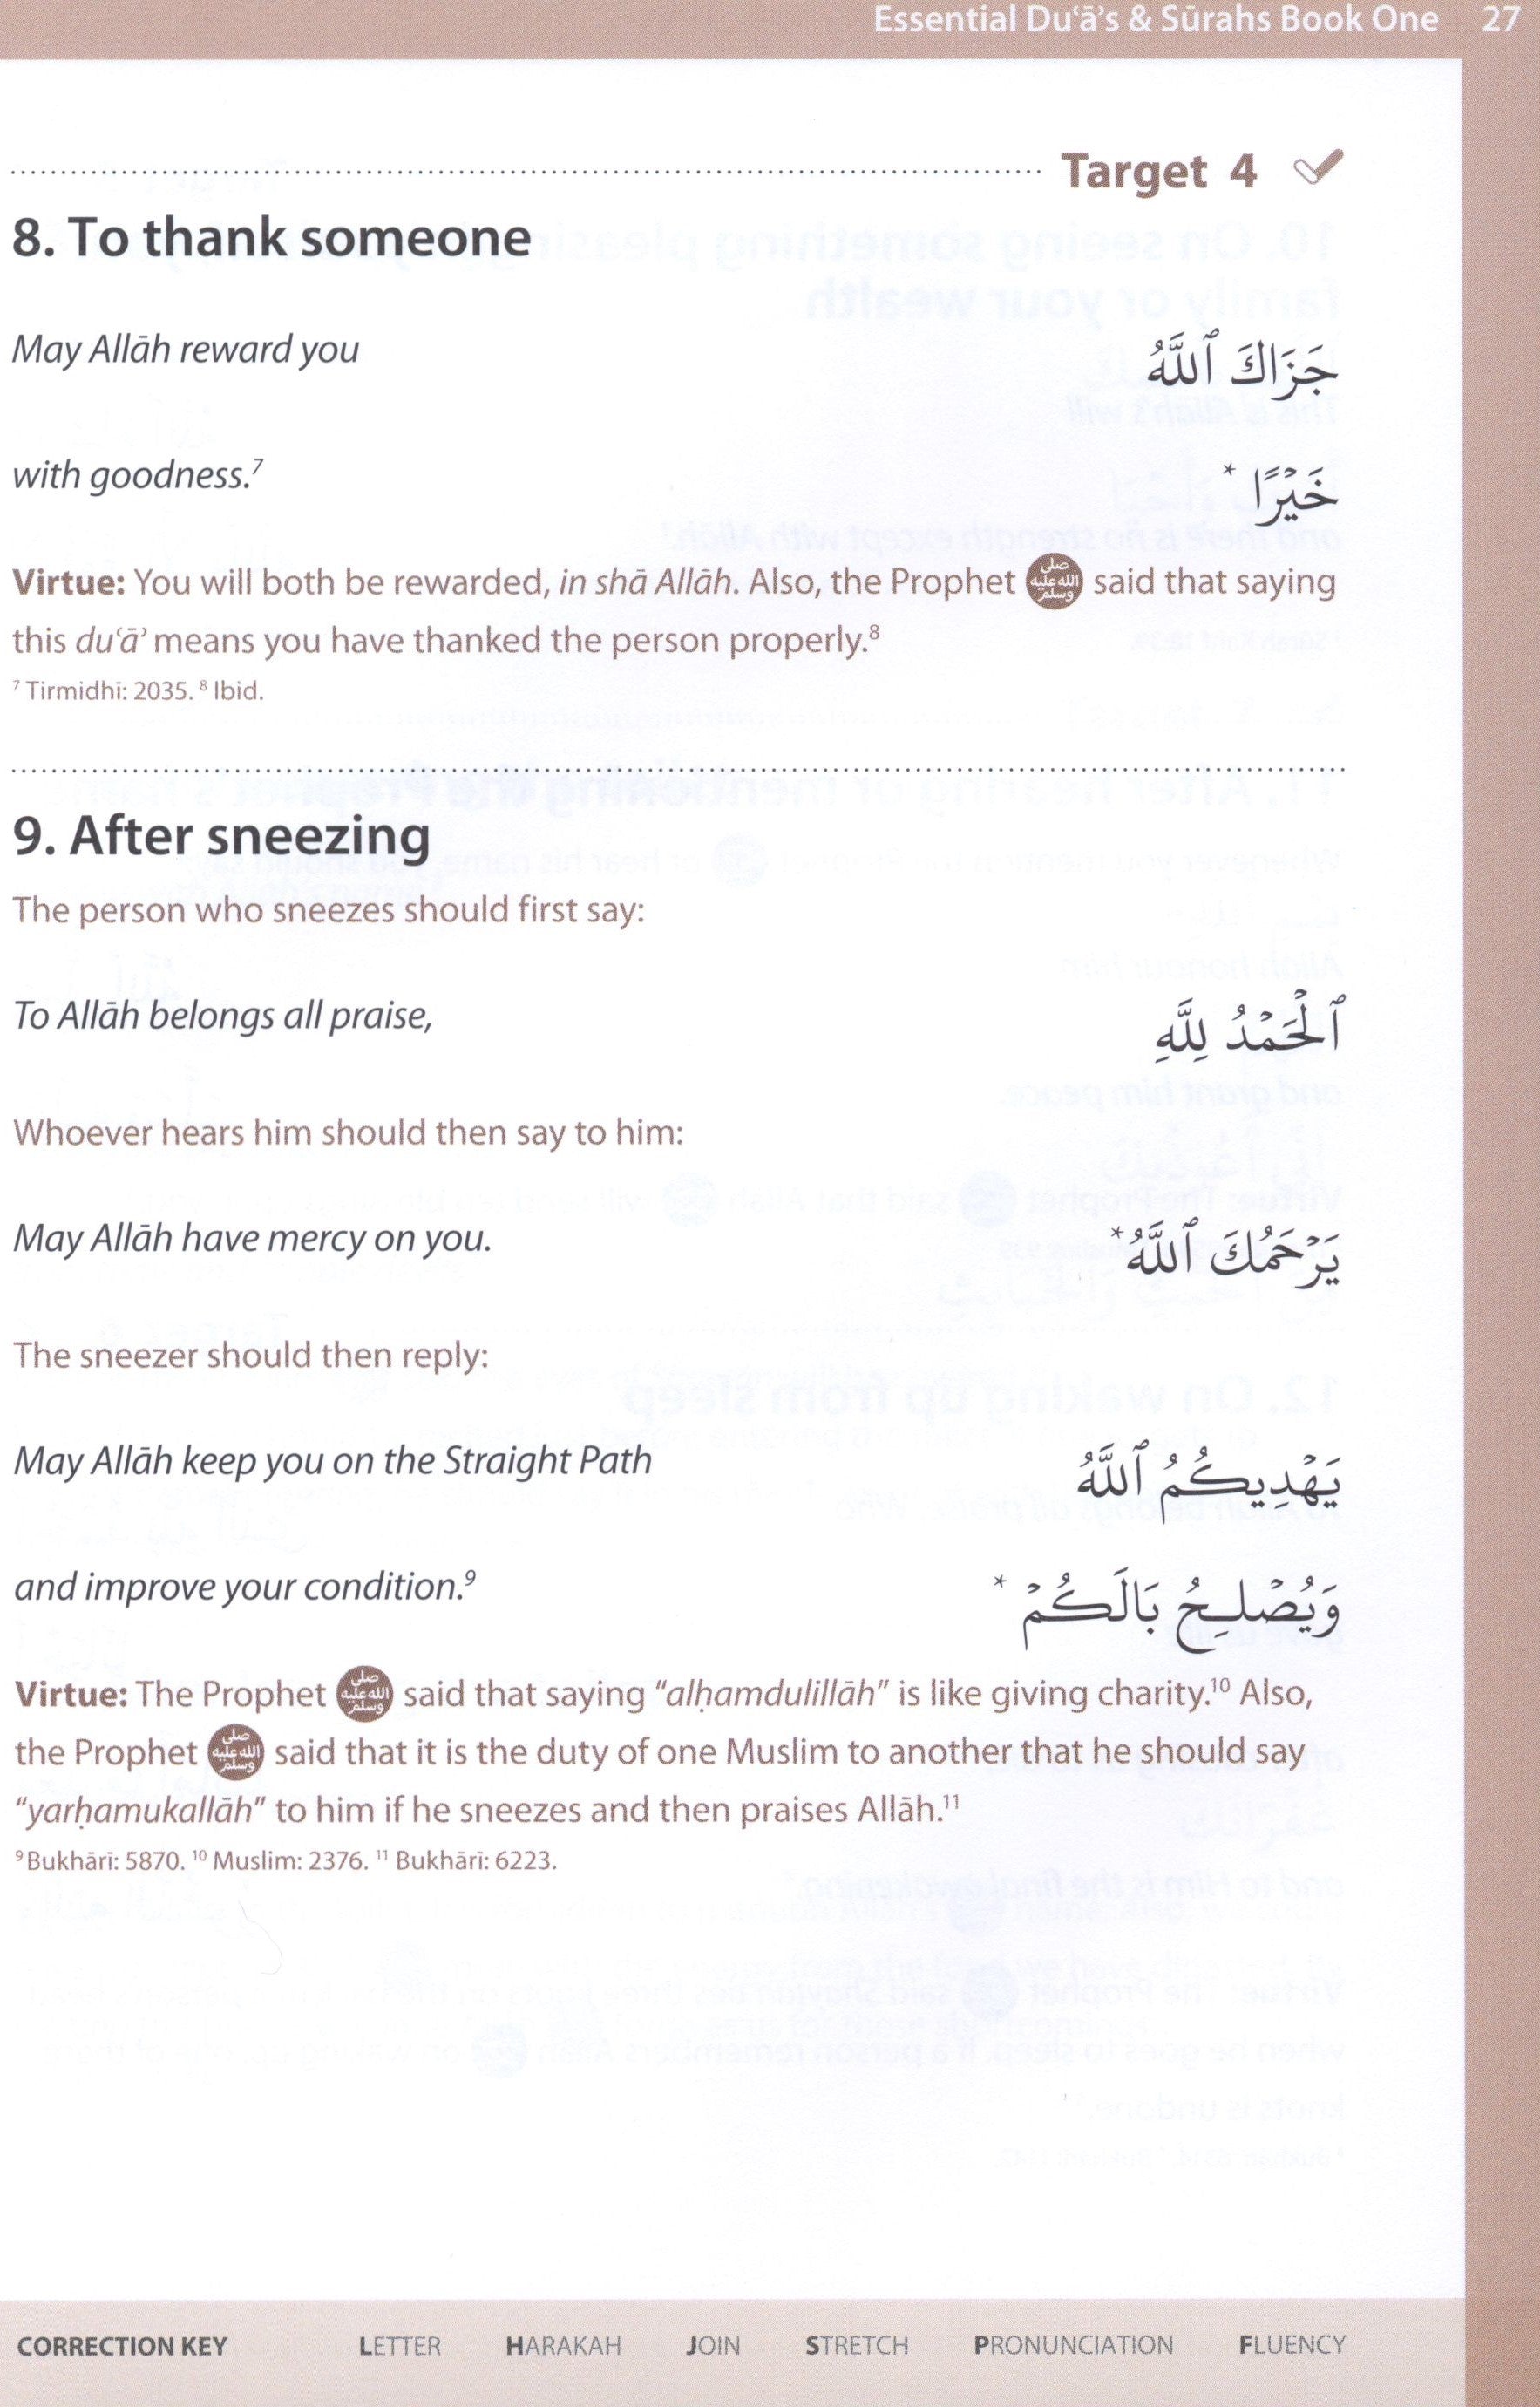 Essential Du‘ā’s & Sūrahs Book One 27
Target 4
8. To thank someone
May Allāh reward you جَزَاكَ ٱللَّهُ
with goodness.⁷ خَيْرًا *
Virtue: You will both be rewarded, in shā Allāh. Also, the Prophet ﷺ said that saying
this du‘ā’ means you have thanked the person properly.⁸
⁷ Tirmidhī: 2035. ⁸ Ibid.
9. After sneezing
The person who sneezes should first say:
To Allāh belongs all praise, ٱلْحَمْدُ لِلَّهِ
Whoever hears him should then say to him:
May Allāh have mercy on you. يَرْحَمُكَ ٱللَّهُ*
The sneezer should then reply:
May Allāh keep you on the Straight Path يَهْدِيكُمُ ٱللَّهُ
and improve your condition.⁹ وَيُصْلِحُ بَالَكُمْ *
Virtue: The Prophet ﷺ said that saying “alḥamdulillāh” is like giving charity.¹⁰ Also,
the Prophet ﷺ said that it is the duty of one Muslim to another that he should say
“yarḥamukallāh” to him if he sneezes and then praises Allāh.¹¹
⁹ Bukhārī: 5870. ¹⁰ Muslim: 2376. ¹¹ Bukhārī: 6223.
CORRECTION KEY LETTER HARAKAH JOIN STRETCH PRONUNCIATION FLUENCY